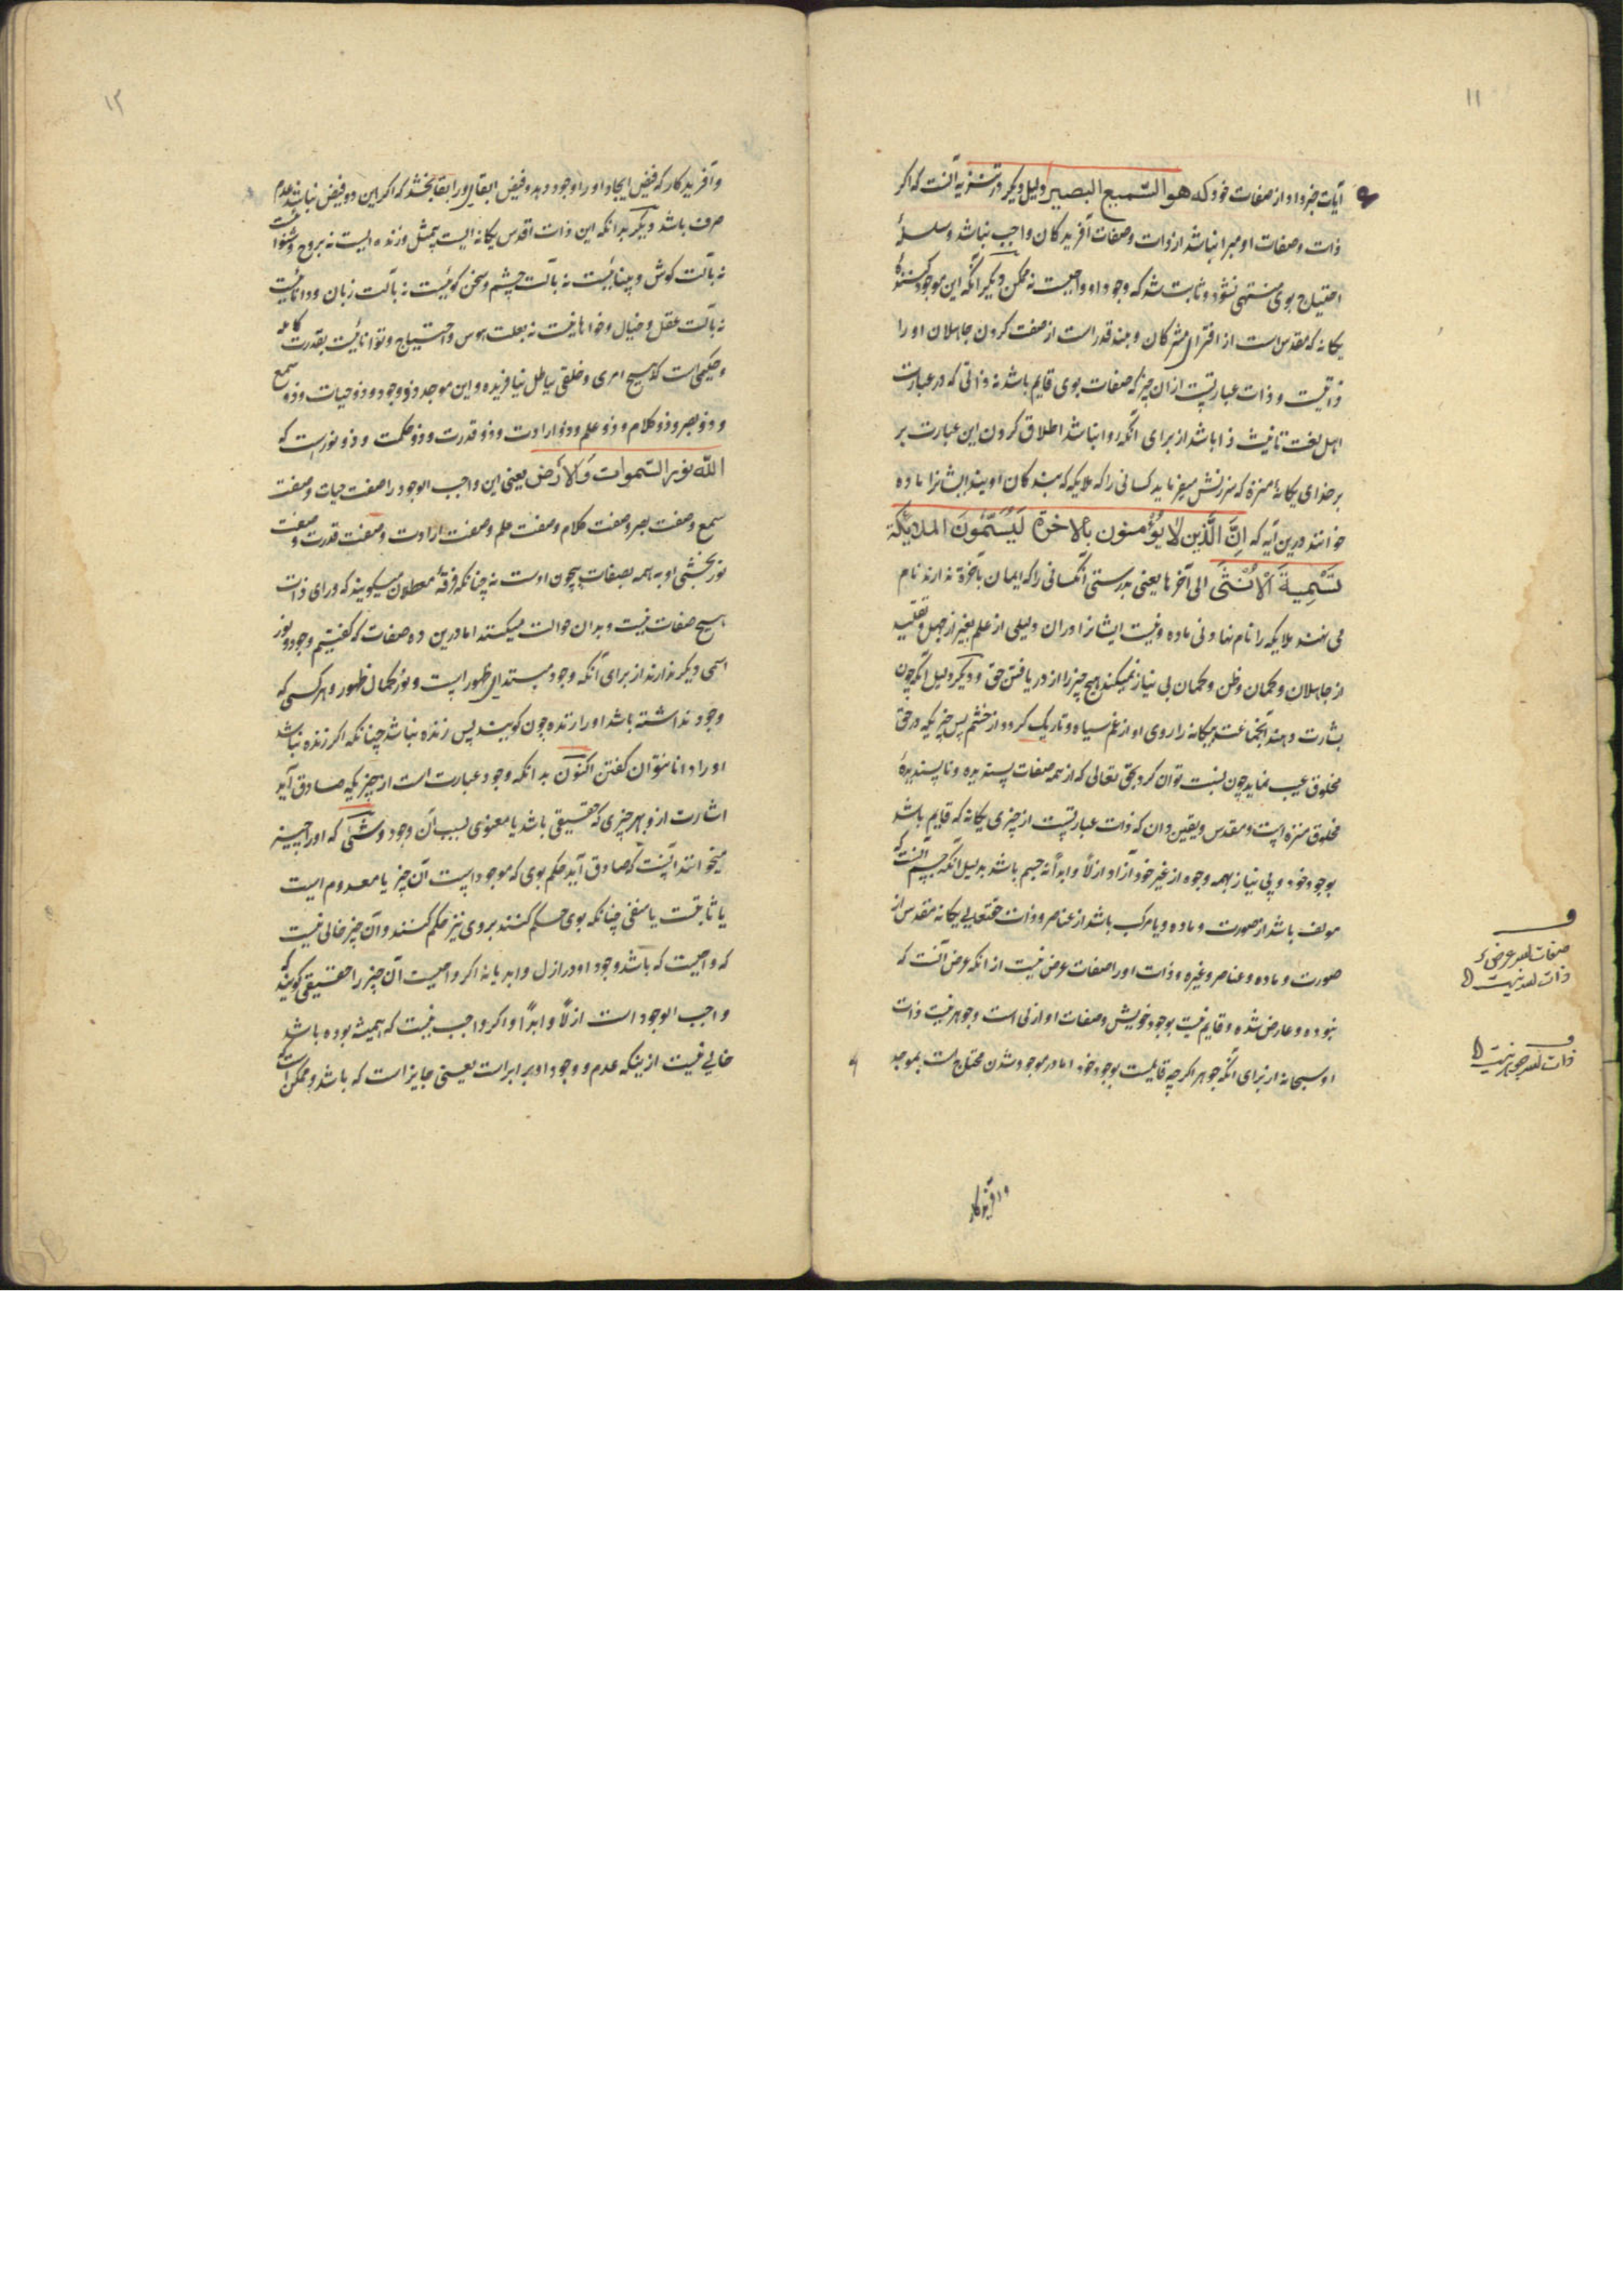 ۱۱
آیات خبر داد از صفات خود که هو السّمیع البصیر دلیل دیگر در تنزیه آنست که اگر
ذات و صفات او مبرا نباشد از ذات و صفات آفریدکان واجب نباشد و سلسلهٔ
احتیاج بوی منتهی نشود و ثابت شد که وجود او واجبست نه ممکن دیگر آنکه این موجود کننده
یکانه که مقدس است از افترای مشرکان و بلند قدر است از صفت کردن جاهلان او را
ذاتیست و ذات عبارتیست ازان چیز که صفات بوی قایم باشد نه ذاتی که در عبارت
اهل لغت تانیث ذا باشد از برای آنکه روا نباشد اطلاق کردن این عبارت بر
بر خدای یکانهٔ منزه که سرزنش میفرماید کسانی را که ملایکه که بندکان اویند ایشانرا ماده
خوانند درین آیه که اِنَّ الَّذین لا یُؤمنون بالاخرة لَیُسَمّونَ الملایکة
تَسْمِیةَ الاُنثی الی آخرها یعنی بدرستی آنکسانی را که ایمان بآخرة ندارند نام
می نهند ملایکه را نام نهادنی ماده و نیست ایشانرا دران دلیلی از علم بغیر از جهل و تقلید
از جاهلان و کمان و ظن و کمان بی نیاز نمیکند هیچ چیز را از دریافتن حق و دیگر دلیل آنکه چون
بشارت دهند آنجماعت بیکانه را روی او از غم سیاه و تاریک کردد از خشم پس چیزیکه در حق
مخلوق عیب نماید چون نسبت توان کرد بحق تعالی که از همه صفات پسندیده و ناپسندیدهٔ
مخلوق منزه است و مقدس و یقین دان که ذات عبارتیست از چیزی یکانه که قایم باشد
بوجود خود و بی نیاز بهمه وجوه از غیر خود آزاد ازلاً و ابداً نه جسم باشد بدلیل آنکه جسم آنست که
مولف باشد از صورت و ماده و یا مرکب باشد از عناصر و ذات حقتعالی یکانه مقدس از
صورت و ماده و عناصر و غیره و ذات اورا صفات عرض نیست ازانکه عرض آنست که
نبوده و عارض شده و قایم نیست بوجود خویش و صفات او ازلی است و جوهر نیست ذات
او سبحانه از برای آنکه جوهر اکرچه قایمست بوجود خود اما در موجود شدن محتاجست بموجد
و آفریدکار
صفات
ذات
ذات
۱۲
و آفریدکار که فیض ایجاد اورا وجود دهد و فیض ابقای اورا بقا بخشد که اکر این دو فیض نباشد عدم
صرف باشد دیگر بدانکه این ذات اقدس یکانه ایست بیمثل و زنده ایست نه بروح و شنواست
نه بآلت کوش و بیناییست نه بآلت چشم و سخن کوئیست نه بآلت زبان و داناییست
نه بآلت عقل و خیال و خواهانیست نه بعلت هوس و احتیاج و تواناییست بقدرت کامله
و حکیمی است که هیچ امری و خلقی بباطل نیافریده و این موجد ذو وجود و ذو حیات و ذو سمع
و ذو بصر و ذو کلام و ذو علم و ذو ارادت و ذو قدرت و ذو حکمت و ذو نورست که
اللّه نور السّموات وَالاَرض یعنی این واجب الوجود را صفت حیات و صفت
سمع و صفت بصر و صفت کلام و صفت علم و صفت ارادت و صفت قدرت و صفت
نور بخشی او به همه بصفات بیچون اوست نه چنانکه فرقهٔ معطلون میکویند که ورای ذات
هیچ صفات نیست و بدان حوالت میکنند اما درین ده صفات که کفتیم وجود و نور
اسمی دیگر ندارند از برای آنکه وجود مبتدای ظهور است و نور کمال ظهور و هر کسی که
وجود نداشته باشد اورا زنده چون کویند پس زنده نباشد چنانکه اکر زنده نباشد
اورا دانا نتوان کفتن اکنون بدانکه وجود عبارت است از چیزیکه صادق آید
اشارت ازو بهر چیزی که حقیقی باشد یا معنوی بسبب آن وجود و شئ که اورا چیز
میخوانند آنست که صادق آید حکم بوی که موجود است آن چیز یا معدوم است
یا ثابتست یا منفی چنانکه بوی حکم کنند بروی نیز حکم کنند و آن چیز خالی نیست
که واجبست که باشد وجود او در ازل و ابد یا نه اکر واجبست آن چیز را حقیقی کویند که
واجب الوجود است ازلاً و ابداً و اکر واجب نیست که همیشه بوده باشد
خالی نیست ازینکه عدم و وجود او برابر است یعنی جایز است که باشد و ممکن است